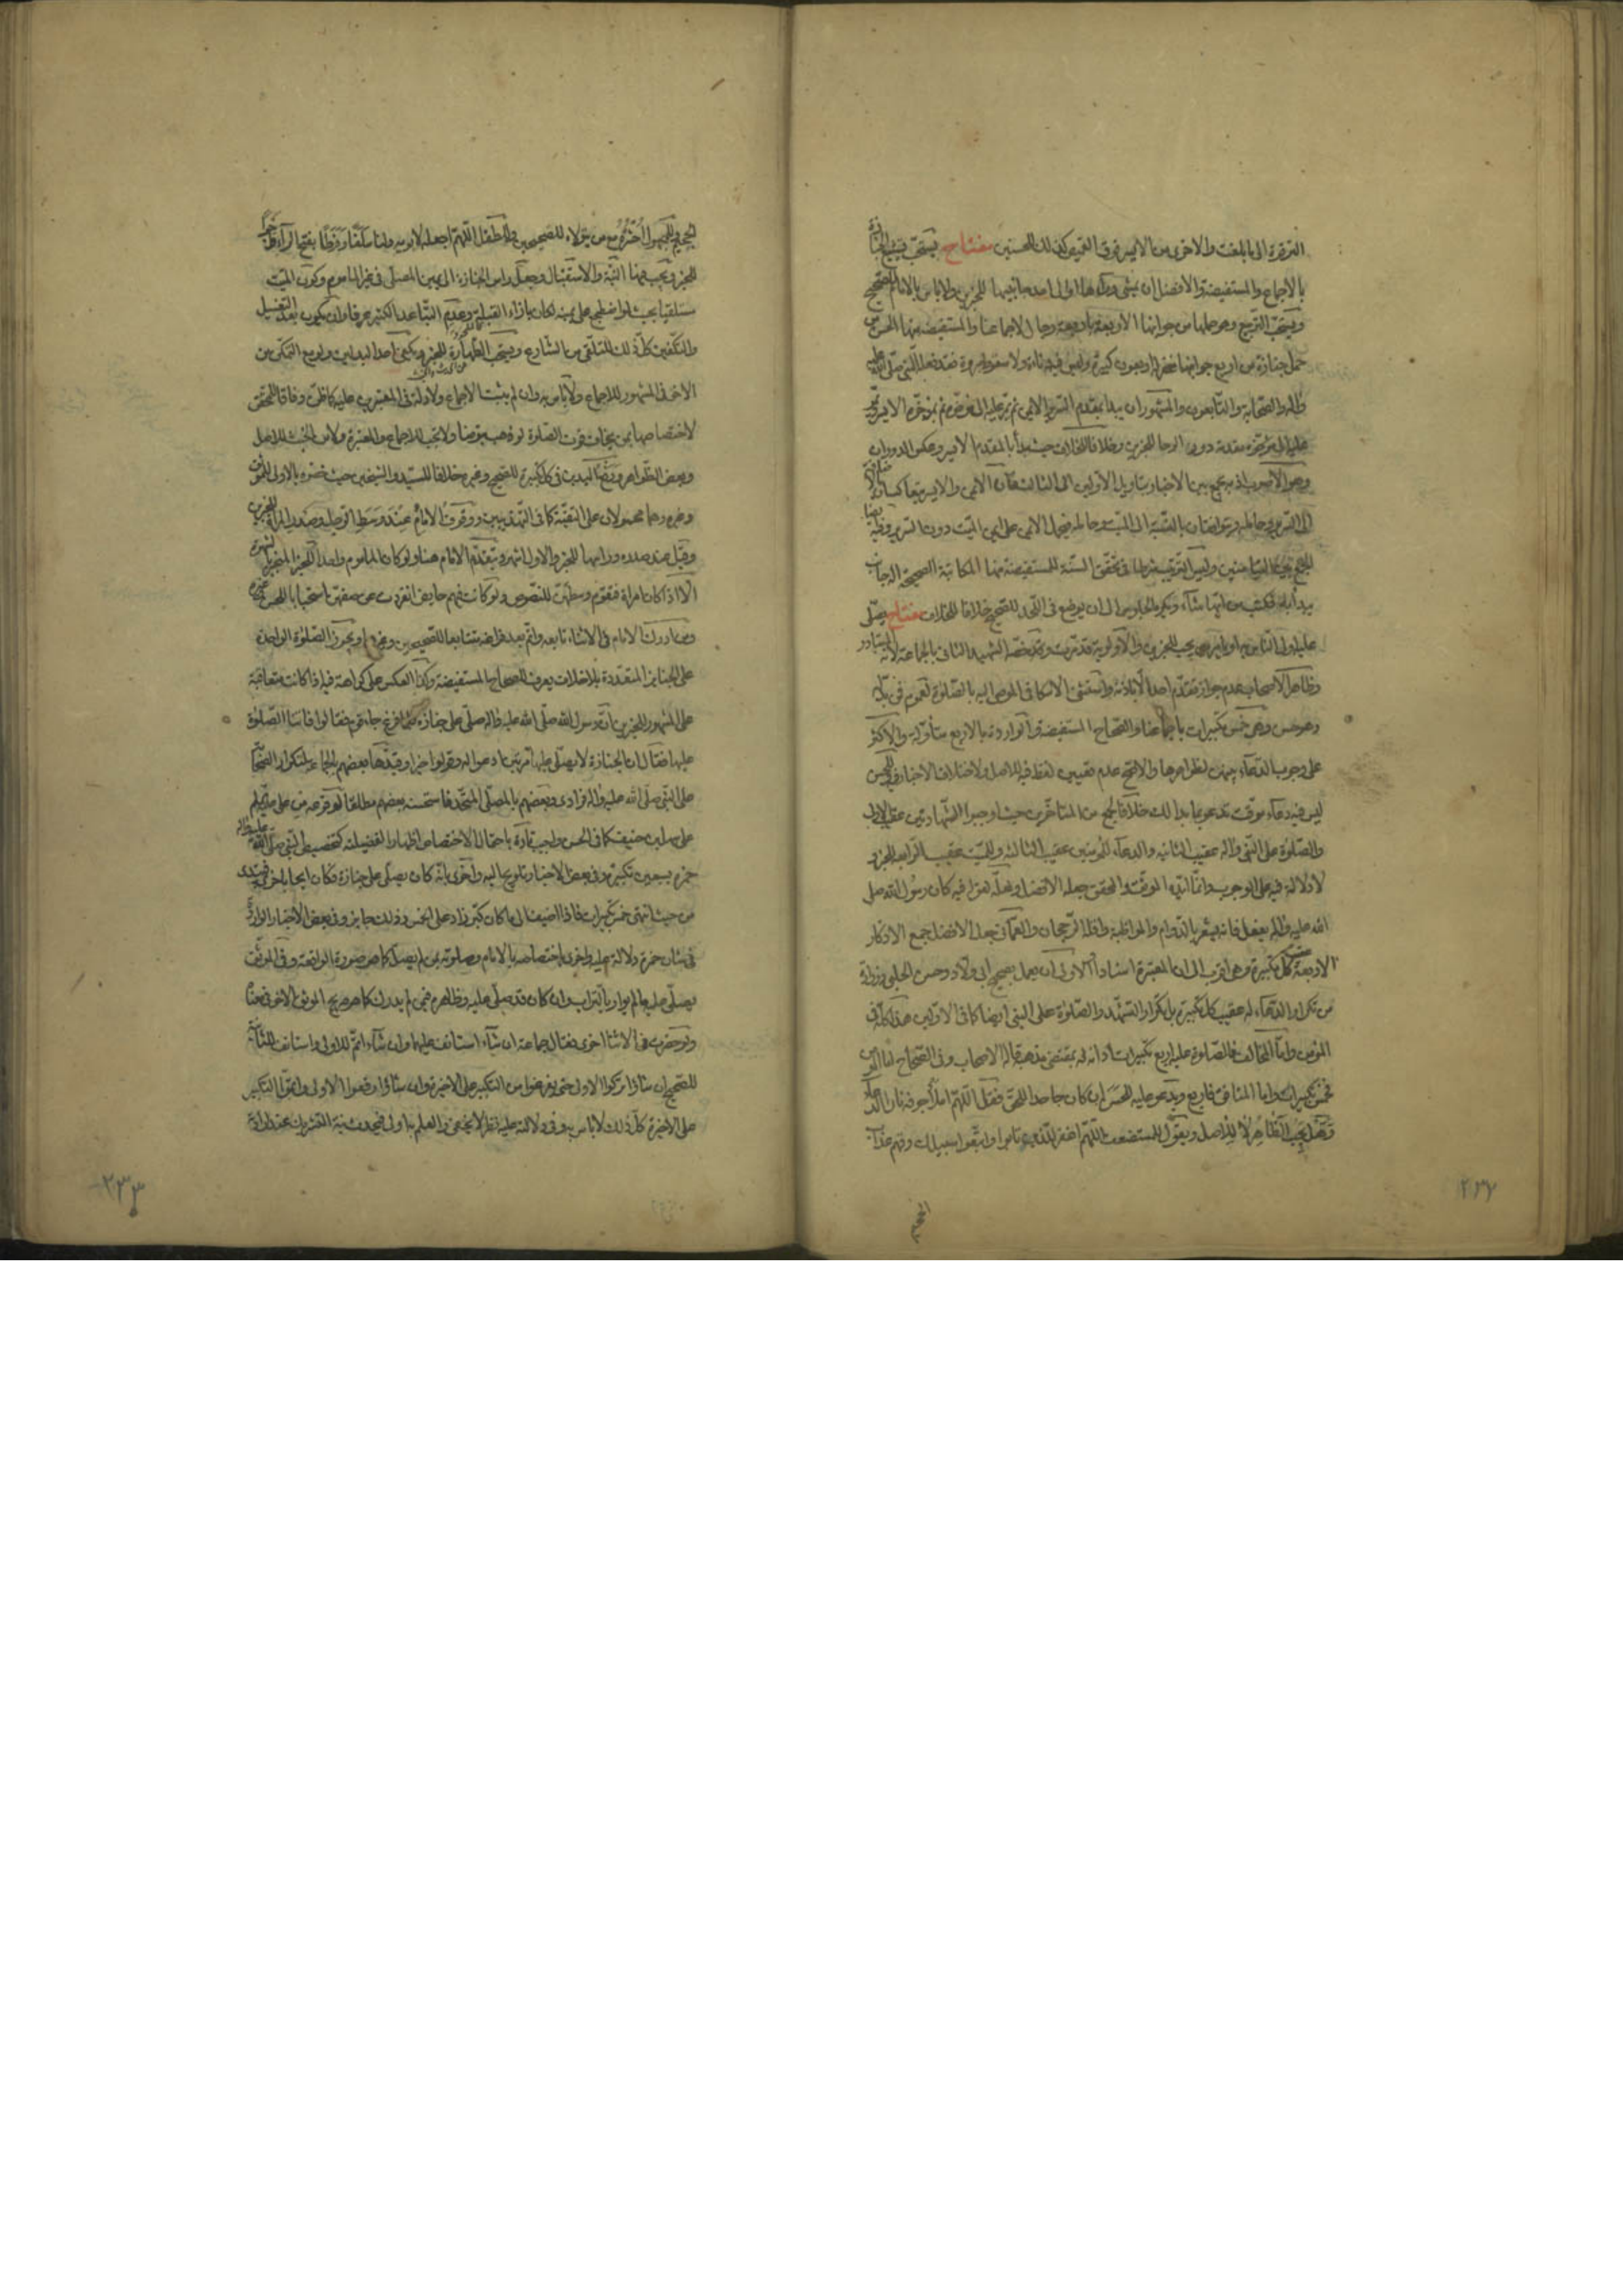 الترقوة الى ما بلغت والاخرى من الايسر فوق القميص كذلك للحسنين مفتاح يستحب تشييع الجنازة
بالاجماع والمستفيضة والافضل ان يمشى وراءها او الى احد جانبيها للخبرين ولا باس بالامام للصحيح
ويستحب التربيع وهو حملها من جوانبها الاربعة باربعة رجال لاجماعنا والمستفيضة منها الحسن من
حمل جنازة من اربع جوانبها غفر له اربعون كبيرة وليس فيه دناءة ولا سقوط مروة فقد فعله النبى صلى الله عليه
واله والصحابة والتابعون والمشهور ان يبدا بمقدم السرير الايمن ثم يمر عليه الى مؤخره ثم بمؤخره الايسر ويمر
عليه الى مقدمه دور الرحا للخبرين وخلافا للخلاف حيث بدأ بالمقدم الايسر وعكس الدوران
وهو الاصوب اذ به يجمع بين الاخبار بتاويل الاولين الى الثالث فان الايمن والايسر يتعاكسان
الى السرير وحامله ويتوافقان بالنسبة الى الميت وحامله فيحمل الايمن على ايمن الميت دون السرير وفيه
للجمع بين المتيامنين وليس الترتيب شرطا فى تحقق السنة للمستفيضة منها المكاتبة الصحيحة اى جانب
يبدأ به فكتب من ايها شاء ويكره الجلوس الى ان يوضع فى اللحد للصحيح خلافا للخلاف مفتاح يصلى
عليه اولى الناس به او يامر من يحب للخبرين والاولوية قد مرت وقد خصه الشهيد الثانى بالجماعة لانه المتبادر
وظاهر الاصحاب عدم جواز تقدم احد الا باذنه واستثنى الاسكافى الموصى اليه بالصلوة لعموم فمن بدله
وهو حسن وهى خمس تكبيرات باجماعنا والصحاح المستفيضة والواردة بالاربع متأولة والاكثر
على وجوب الدعاء بينهن لظواهرها والاصح عدم تعيين لفظ فيه للاصل ولاختلاف الاخبار وللحسن
ليس فيه دعاء موقت تدعو بما بدا لك خلافا لجمع من المتاخرين حيث اوجبوا الشهادتين عقيب الاولى
والصلوة على النبى واله عقيب الثانية والدعاء للمؤمنين عقيب الثالثة وللميت عقيب الرابعة للخبر و
لا دلالة فيه على الوجوب وانما اليه الموثق والمحقق جعله الافضل ولعله لقوله فيه كان رسول الله صلى
الله عليه واله يفعل فانه يشعر بالدوام والمواظبة واقله الرجحان والعمانى جعل الافضل جمع الاذكار
الاربعة عقيب كل تكبيرة وهى اقرب الى الى المعتبرة اسنادا الاولى ان يعمل بصحيح ابى ولاد وحسن الحلبى وزرارة
من تكرار الدعاء له عقيب كل تكبيرة بل تكرار التشهد والصلوة على النبى ايضا كما فى الاولين هذا كله فى
المؤمن واما المخالف فالصلوة عليه اربع تكبيرات ادانة له بمقتضى مذهبه قاله الاصحاب وفى الصحاح اما المؤمن
فخمس تكبيرات واما المنافق فاربع ويدعو عليه للحسن ان كان جاحدا للحق فقل اللهم املأ جوفه نارا
وهل يجب الظاهر لا للاصل ويقول للمستضعف اللهم اغفر للذين تابوا واتبعوا سبيلك وقهم عذاب
٢٣٢
الجحيم وللمجهول احشره مع من يتولاه للصحيحين وللطفل اللهم اجعله لابويه ولنا سلفا وفرطا
للخبر ويجب فيها النية والاستقبال وجعل راس الجنازة الى يمين المصلى فى غير الماموم وكون الميت
مستلقيا بحيث لو اضطجع على يمينه لكان بازاء القبلة وعدم التباعد الكثير عرفا وان يكون بعد التغسيل
والتكفين كل ذلك للتلقى من الشارع ويستحب الطهارة للخبر
الاخر فى المشهور للاجماع ولا باس به وان لم يثبت الاجماع ولا دلالة فى المعتبرين عليه كما ظن وفاقا للمحقق
لاختصاصها بمن يخاف فوت الصلوة لو ذهب يتوضأ ولا تجب للاجماع والمعتبرة ولا من الخبث للاصل
وبعض الظواهر ورفع اليدين فى كل تكبيرة للصحيح وغيره خلافا للسيد والشيخين حيث خصوه بالاولى للموثق
وغيره وهما محمولان على التقية كما فى التهذيبين ووقوف الامام عند وسط الرجل وصدر المراة للخبرين
وقيل عند صدره وراسها للخبر والاول اشهر ويتقدم الامام هنا ولو كان الماموم واحدا للخبر المنجبر بالشهرة
الا اذا كان امراة فتقوم وسطهن للنصوص ولو كانت فيهم حايض انفردت عن صفهن استحبابا للحسن وغيره
ومن ادرك الامام فى الاثناء تابعه واتم بعد فراغه متتابعا للصحيحين وغيرهما ويجوز الصلوة الواحدة
على الجنايز المتعددة بلا خلاف يعرف للصحاح المستفيضة وكذا العكس على كراهة فيه اذا كانت متعاقبة
على المشهور للخبرين ان رسول الله صلى الله عليه واله صلى على جنازة فلما فرغ جاء قوم فقالوا فاتتنا الصلوة
عليها فقال ان الجنازة لا يصلى عليها مرتين ادعوا له وقولوا خيرا وقيدها بعضهم بالجماعة لتكرار الصحابة
على النبى صلى الله عليه واله فرادى وبعضهم بالمصلى المتحد فاستحسنه بعضهم مطلقا لوقوعه من على عليه السلم
على سهل بن حنيف كما فى الحسن واجيب تارة باحتمال الاختصاص اظهارا لفضيلته كتخصيص النبى صلى الله عليه واله
حمزة بسبعين تكبيرة وفى بعض الاخبار تلويحا اليه واخرى بانه كان يصلى على جنازة فكان ايجاء باخرى فيبتدى
من حيث انتهى خمس تكبيرات فاذا اضيف الى ما كان كبر زاد على الخمس وذلك جايز وفى بعض الاخبار الواردة
فى شان حمزة دلالة عليه واخرى باختصاصه بالامام وصلوته بمن لم يصل كما هو صورة الواقعة وفى الموثق
يصلى عليه ما لم يوار بالتراب وان كان قد صلى عليه وظاهره فيمن لم يدرك كما هو صريح الموثق الاخر فى معناه
ولو حضرت فى الاثناء اخرى فقال جماعة ان شاء استانف عليهما وان شاء اتم للاولى واستانف للثانية
للصحيح ان شاؤا تركوا الاولى حتى يفرغوا من التكبير على الاخيرة وان شاؤا رفعوا الاولى واتموا التكبير
على الاخيرة كل ذلك لا باس به وفى دلالته عليه نظر لا يخفى
٢٣٣